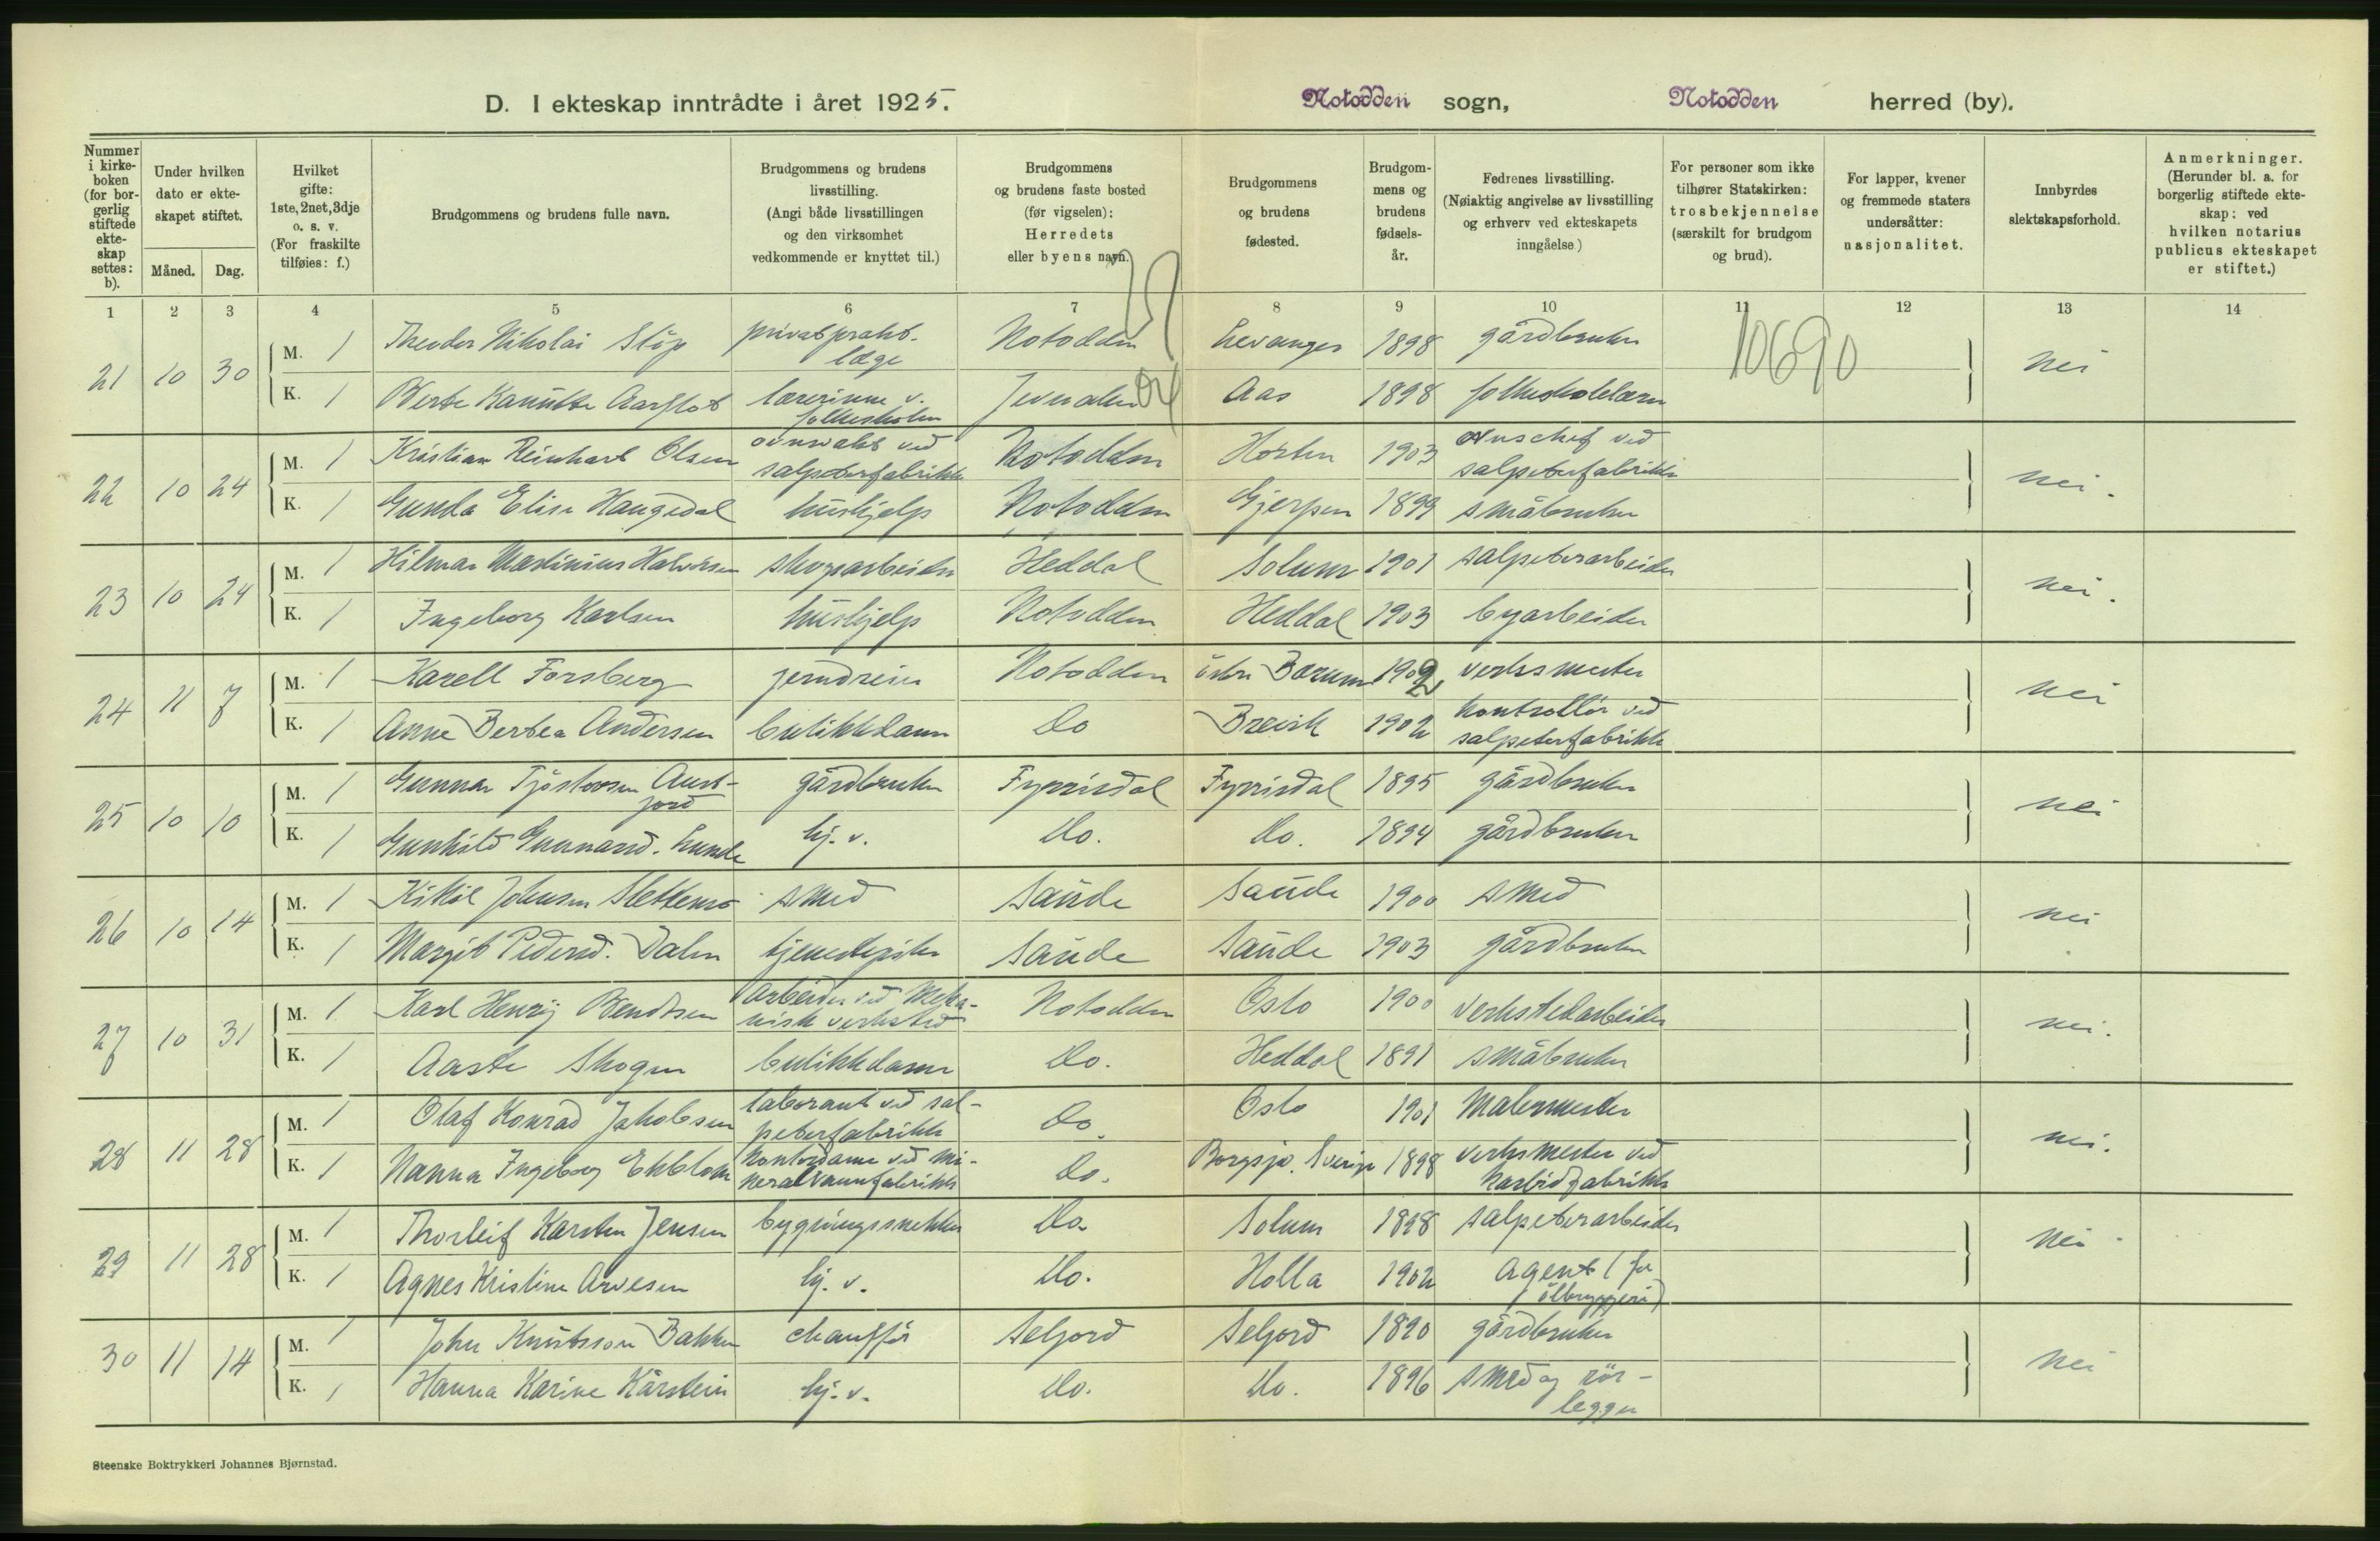 D. I ekteskap inntrådte i året 1925. Notodden sogn, Notodden herred (by).
Nummer i kirke-boken (for bor-gerlig stiftede ekte-skap settes: b).
Under hvilken dato er ekte-skapet stiftet.
Måned. Dag.
Hvilket gifte: 1ste, 2net, 3dje o. s. v. (For fraskilte tilføies: f.)
Brudgommens og brudens fulle navn.
Brudgommens og brudens livsstilling. (Angi både livsstillingen og den virksomhet vedkommende er knyttet til.)
Brudgommens og brudens faste bosted (før vigselen): Herredets eller byens navn.
Brudgommens og brudens fødested.
Brudgom-mens og brudens fødsels-år.
Fedrenes livsstilling. (Nøiaktig angivelse av livsstilling og erhverv ved ekteskapets inngåelse.)
For personer som ikke tilhører Statskirken: trosbekjennelse (særskilt for brudgom og brud).
For lapper, kvener og fremmede staters undersåtter: nasjonalitet.
Innbyrdes slektskapsforhold.
Anmerkninger. (Herunder bl. a. for borgerlig stiftede ekte-skap: ved hvilken notarius publicus ekteskapet er stiftet.)
1 2 3 4 5 6 7 8 9 10 11 12 13 14
10690
21 10 30 M. 1 Theodor Nikolai Støp privatprakt. læge Notodden Levanger 1898 gårdbruker nei
K. 1 Berte Kanutte Aarflot lærerinne v. folkeskolen Jevnaker Aas 1898 folkeskolelærer
22 10 24 M. 1 Kristian Reinhart Olsen ovnsvakt ved salpeterfabrikk Notodden Horten 1903 ovnschef ved salpeterfabrikk nei.
K. 1 Gunda Elise Haugedal hushjelp Notodden Gjerpen 1899 småbruker
23 10 24 M. 1 Hilmar Martinius Halvorsen skogsarbeider Heddal Solum 1901 salpeterarbeider nei.
K. 1 Ingeborg Karlsen hushjelp Notodden Heddal 1903 byarbeider
24 11 7 M. 1 Karell Forsberg jerndreier Notodden östre Bærum 1902 verksmester nei
K. 1 Anne Bertea Andersen butikkdame Do Brevik 1902 kontrollör ved salpeterfabrikk
25 10 10 M. 1 Gunnar Tjöstovsen Aust-jord gårdbruker Fyrrisdal Fyrrisdal 1895 gårdbruker nei
K. 1 Gunhild Gunnarsd. Lunde hj. v. Do. Do. 1894 gårdbruker
26 10 14 M. 1 Kittil Johnsen Slettemo smed Saude Saude 1900 smed nei
K. 1 Margit Pedersd. Dalen tjenestepike Saude Saude 1903 gårdbruker
27 10 31 M. 1 Karl Henrij Bendtsen arbeider ved Meka-nisk verksted Notodden Oslo 1900 verkstedarbeider nei.
K. 1 Aaste Skogen butikkdame Do. Heddal 1891 småbruker
28 11 28 M. 1 Olaf Konrad Jakobsen laborant ved sal-peterfabrikk Do. Oslo 1901 Malermester nei.
K. 1 Nanna Ingeborg Ekblom kontordame ved mi-neralvannfabrikk Do. Borgsjø. Sverige 1898 verksmester ved karbidfabrikk
29 11 28 M. 1 Thorleif Karsten Jensen bygningssnekker Do. Solum 1898 salpeterarbeider nei
K. 1 Agnes Kristine Arvesen hj. v. Do. Holla 1902 agent (for ölbryggeri)
30 11 14 M. 1 John Knutsson Bakken chaufför Seljord Seljord 1890 gårdbruker nei
K. 1 Hanna Karine Kårstein hj. v. Do. Do. 1896 smed og rör-legger
Steenske Boktrykkeri Johannes Bjørnstad.